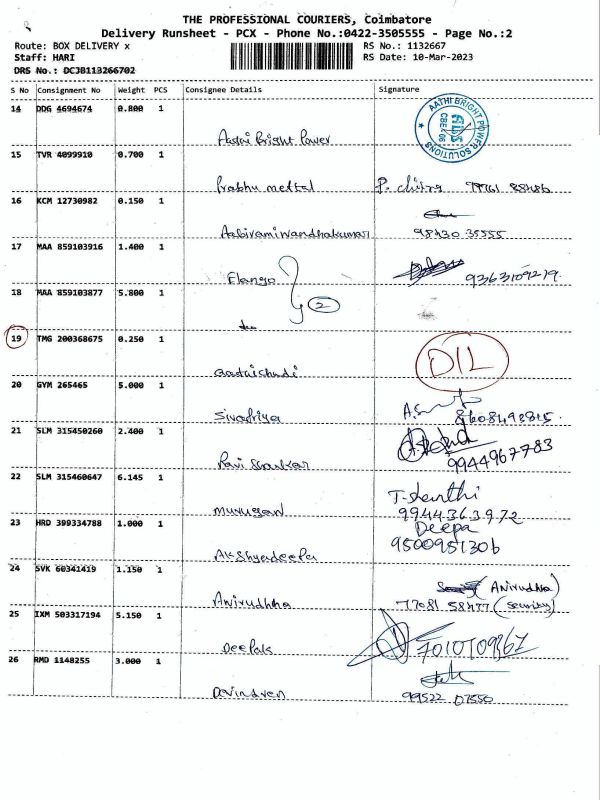 THE PROFESSIONAL COURIERS, Coimbatore
Delivery Runsheet - PCX - Phone No.:0422-3505555 - Page No.:2
Route: BOX DELIVERY x
RS No.: 1132667
Staff: HARI
RS Date: 10-Mar-2023
DRS No.: DCJB113266702
S No Consignment No Weight PCS Consignee Details Signature
14 DDG 4694674 0.800 1
Bright Power
AATHI BRIGHT POWER SOLUTIONS
15 TVR 4099910 0.700 1
Prabhu mettal P. chitra
16 KCM 12730982 0.150 1
98430 35555
17 MAA 859103916 1.400 1
Elango 9363109279.
2
18 MAA 859103877 5.800 1
19 TMG 200368675 0.250 1
DIL
20 GYM 265465 5.000 1
Sivapriya 8608498815.
21 SLM 315450260 2.400 1
Ravi Shankar 9944967783
22 SLM 315460647 6.145 1
T. Santhi
murugan 9944363972
23 HRD 399334788 1.000 1
Deepa
Akshyadeepa 9500951306
24 SVK 60341419 1.150 1
(Anirudhha)
Anirudhha 77081 58477 (Security)
25 IXM 503317194 5.150 1
Deepak 7010709367
26 RMD 1148255 3.000 1
Devindren 99522 07550